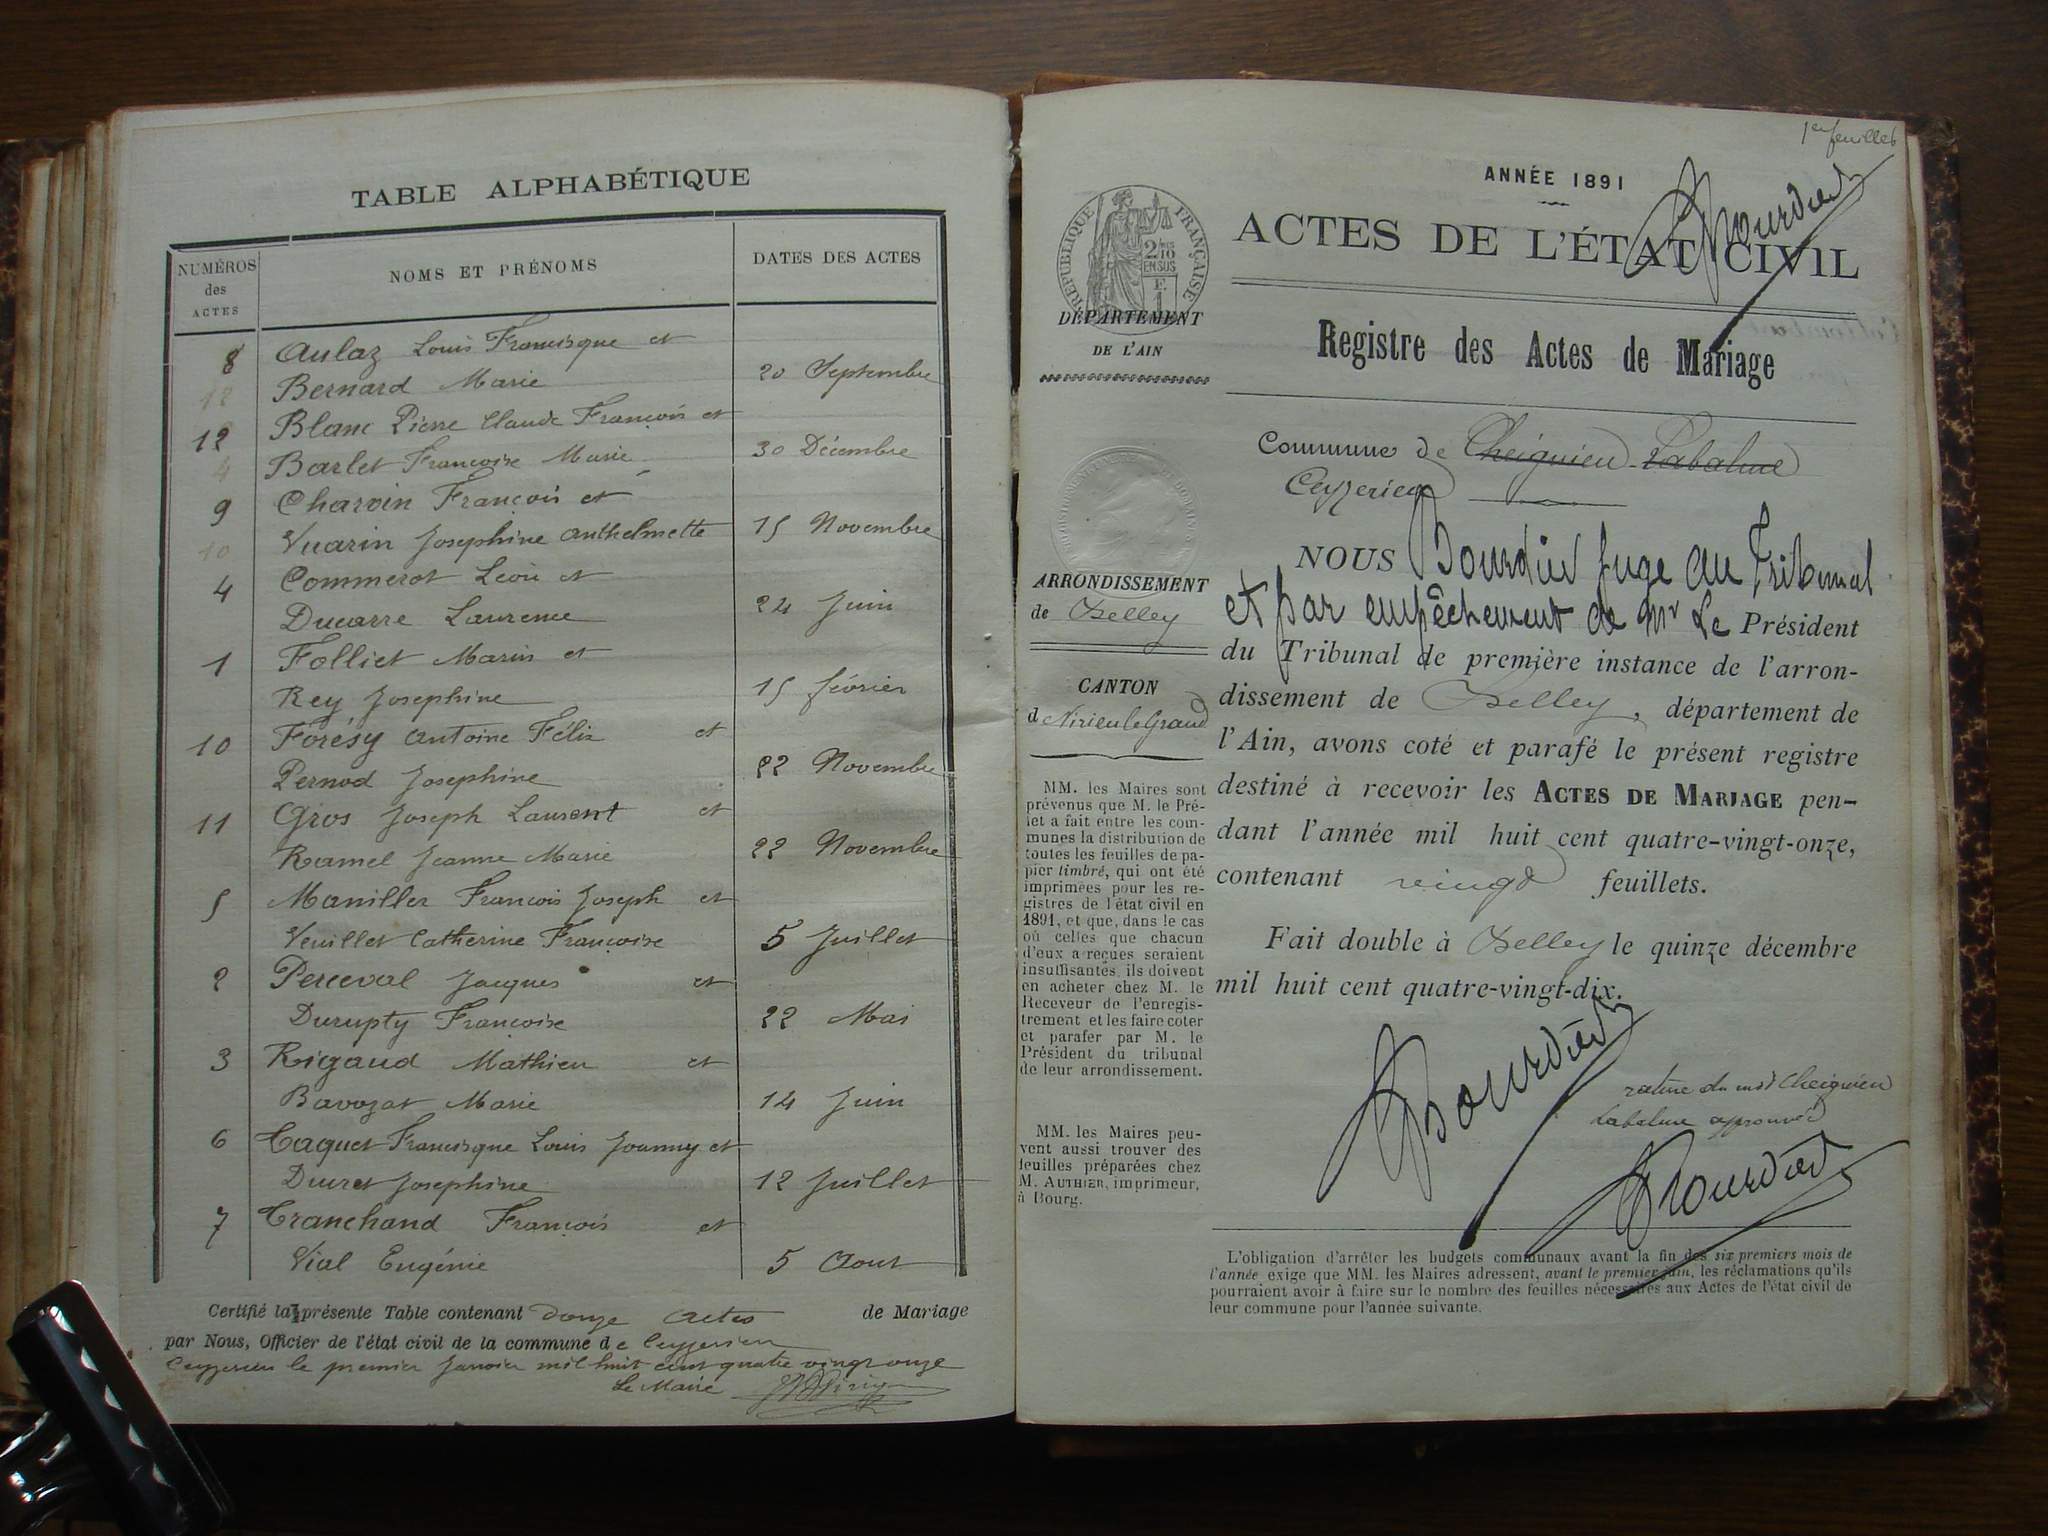 TABLE ALPHABÉTIQUE
NUMÉROS des ACTES
NOMS ET PRÉNOMS
DATES DES ACTES
8 Aulaz Louis Francisque et
Bernard Marie 20 Septembre
12 Blanc Pierre Claude François et
Barlet Francoise Marie 30 Décembre
9 Charvin François et
Vuarin Josephine Anthelmette 15 Novembre
4 Commerot Léon et
Ducarre Laurence 24 Juin
1 Folliet Marin et
Rey Josephine 15 février
10 Forésy Antoine Félix et
Pernod Josephine 22 Novembre
11 Gros Joseph Laurent et
Ramel Jeanne Marie 22 Novembre
5 Maniller François Joseph et
Veuillet Catherine Françoise 5 Juillet
2 Perceval Jacques et
Durupty Françoise 22 Mai
3 Rigaud Mathieu et
Bavozat Marie 14 Juin
6 Taquet Francisque Louis Joanny et
Ducret Josephine 12 Juillet
7 Tranchand François et
Vial Eugénie 5 Aout
Certifié la présente Table contenant Douze actes de Mariage
par Nous, Officier de l'état civil de la commune de Ceyzerieu
Ceyzerieu le premier Janvier mil huit cent quatre vingt onze
Le Maire
1er feuillet
ANNÉE 1891
Bourdin
ACTES DE L'ÉTAT CIVIL
RÉPUBLIQUE FRANÇAISE
2/10 EN SUS
F. 1
DÉPARTEMENT
DE L'AIN
Registre des Actes de Mariage
Commune de Cheignieu-Labalme
Ceyzerieu
ARRONDISSEMENT
de Belley
CANTON
de Virieu le Grand
NOUS Bourdin Juge au Tribunal
et par empêchement de Mr Le Président
du Tribunal de première instance de l'arron-
dissement de Belley, département de
l'Ain, avons coté et parafé le présent registre
destiné à recevoir les ACTES DE MARIAGE pen-
dant l'année mil huit cent quatre-vingt-onze,
contenant vingt feuillets.
Fait double à Belley le quinze décembre
mil huit cent quatre-vingt-dix.
Bourdin
rature du mot Cheignieu
Labalme approuvée
Bourdin
MM. les Maires sont
prévenus que M. le Pré-
fet a fait entre les com-
munes la distribution de
toutes les feuilles de pa-
pier timbré, qui ont été
imprimées pour les re-
gistres de l'état civil en
1891, et que, dans le cas
où celles que chacun
d'eux a reçues seraient
insuffisantes, ils doivent
en acheter chez M. le
Receveur de l'enregis-
trement et les faire coter
et parafer par M. le
Président du tribunal
de leur arrondissement.
MM. les Maires peu-
vent aussi trouver des
feuilles préparées chez
M. AUTHIER, imprimeur,
à Bourg.
L'obligation d'arrêter les budgets communaux avant la fin des six premiers mois de
l'année exige que MM. les Maires adressent, avant le premier juin, les réclamations qu'ils
pourraient avoir à faire sur le nombre des feuilles nécessaires aux Actes de l'état civil de
leur commune pour l'année suivante.